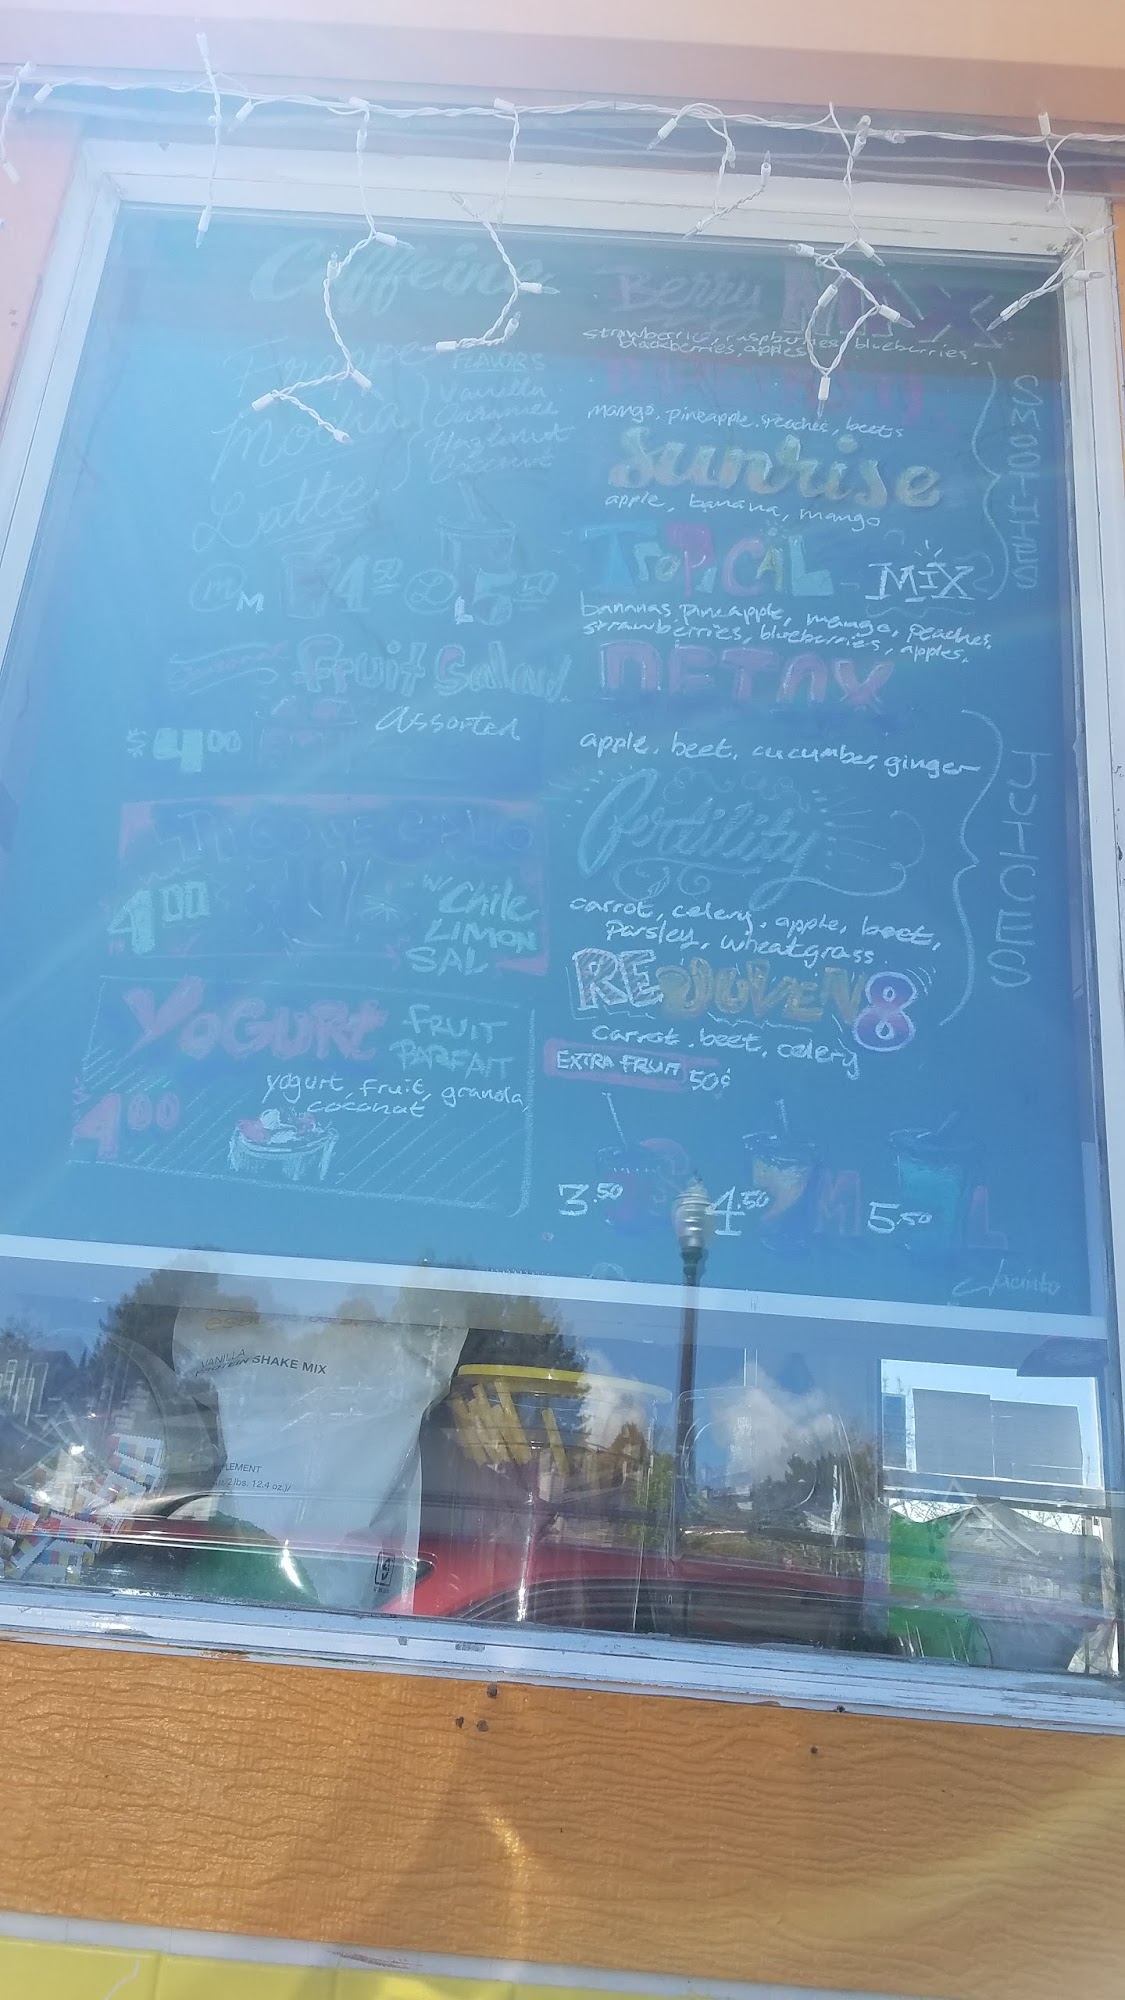 Caffeine
Frappe
Mocha
Latte
FLAVORS
Vanilla
Caramel
Hazelnut
Coconut
M 4.00 L 5.00
Fruit Salad
Assorted
$4.00
4.00
W/ Chile
LIMON
SAL
YOGURt
FRUIT
PARFAIT
yogurt, fruit, granola,
coconut
$4.00
Berry Max
strawberries, raspberries, blueberries,
blackberries, apples
mango, pineapple, peaches, beets
Sunrise
apple, banana, mango
TROPiCAL MIX
bananas, pineapple, mango, peaches,
strawberries, blueberries, apples.
SMOOTHIES
DETOX
apple, beet, cucumber, ginger
Fertility
carrot, celery, apple, beet,
Parsley, wheatgrass
REJUVEN8
carrot, beet, celery
JUICES
EXTRA FRUIT 50¢
3.50 4.50 M 5.50 L
Jacinto
VANILLA
PROTEIN SHAKE MIX
2lbs. 12.4 oz.)